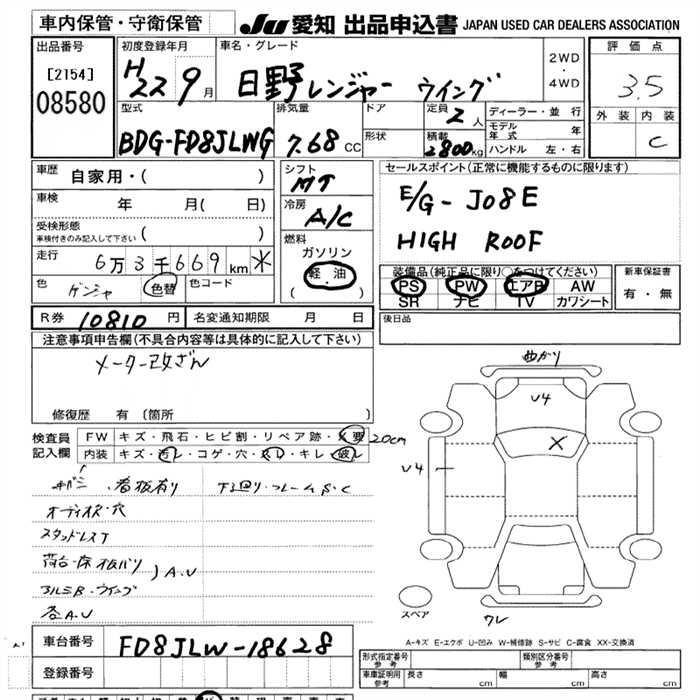 車内保管・守衛保管 JU 愛知 出品申込書 JAPAN USED CAR DEALERS ASSOCIATION
出品番号 初度登録年月 車名・グレード 評価点
[2154] H22 9月 日野レンジャー ウイング 2WD・4WD 3.5
08580 型式 排気量 ドア 定員 2人 ディーラー・並行 外装 内装
BDG-FD8JLWG 7.68 CC 形状 積載 2800kg モデル年式 年 C
ハンドル 左・右
車歴 自家用・( ) シフト MT セールスポイント(正常に機能するものに限ります)
車検 年 月( 日) 冷房 A/C E/G-J08E
受検形態 車検付きのみ記入して下さい ( ) 燃料 HIGH ROOF
走行 6万3千669km ガソリン
軽・油 装備品(純正品に限り○をつけてください) 新車保証書
色 ゲンジャ 色替 色コード ( ) PS PW エアB AW 有・無
SR ナビ TV カワシート
R券 10810円 名変通知期限 月 日 後日品
注意事項申告欄(不具合内容等は具体的に記入して下さい)
メーター改ざん
曲がり
修復歴 有 (箇所 )
U4
検査員 FW キズ・飛石・ヒビ割・リペア跡・X要 20cm
記入欄 内装 キズ・汚レ・コゲ・穴・スレ・キレ・破レ
X
U4
看板有り 下廻り・フレームS・C
オーディオス・穴
スタッドレスT
荷台・床木板バリ
アルミB・ウイング
A.U
各A.U
スペア
クレ
車台番号 FD8JLW-18628
A-キズ E-エクボ U-凹み W-補修跡 S-サビ C-腐食 XX-交換済
登録番号
形式指定番号 参考 類別区分番号 参考
車庫証明用 参考 長さ cm 幅 cm 高さ cm